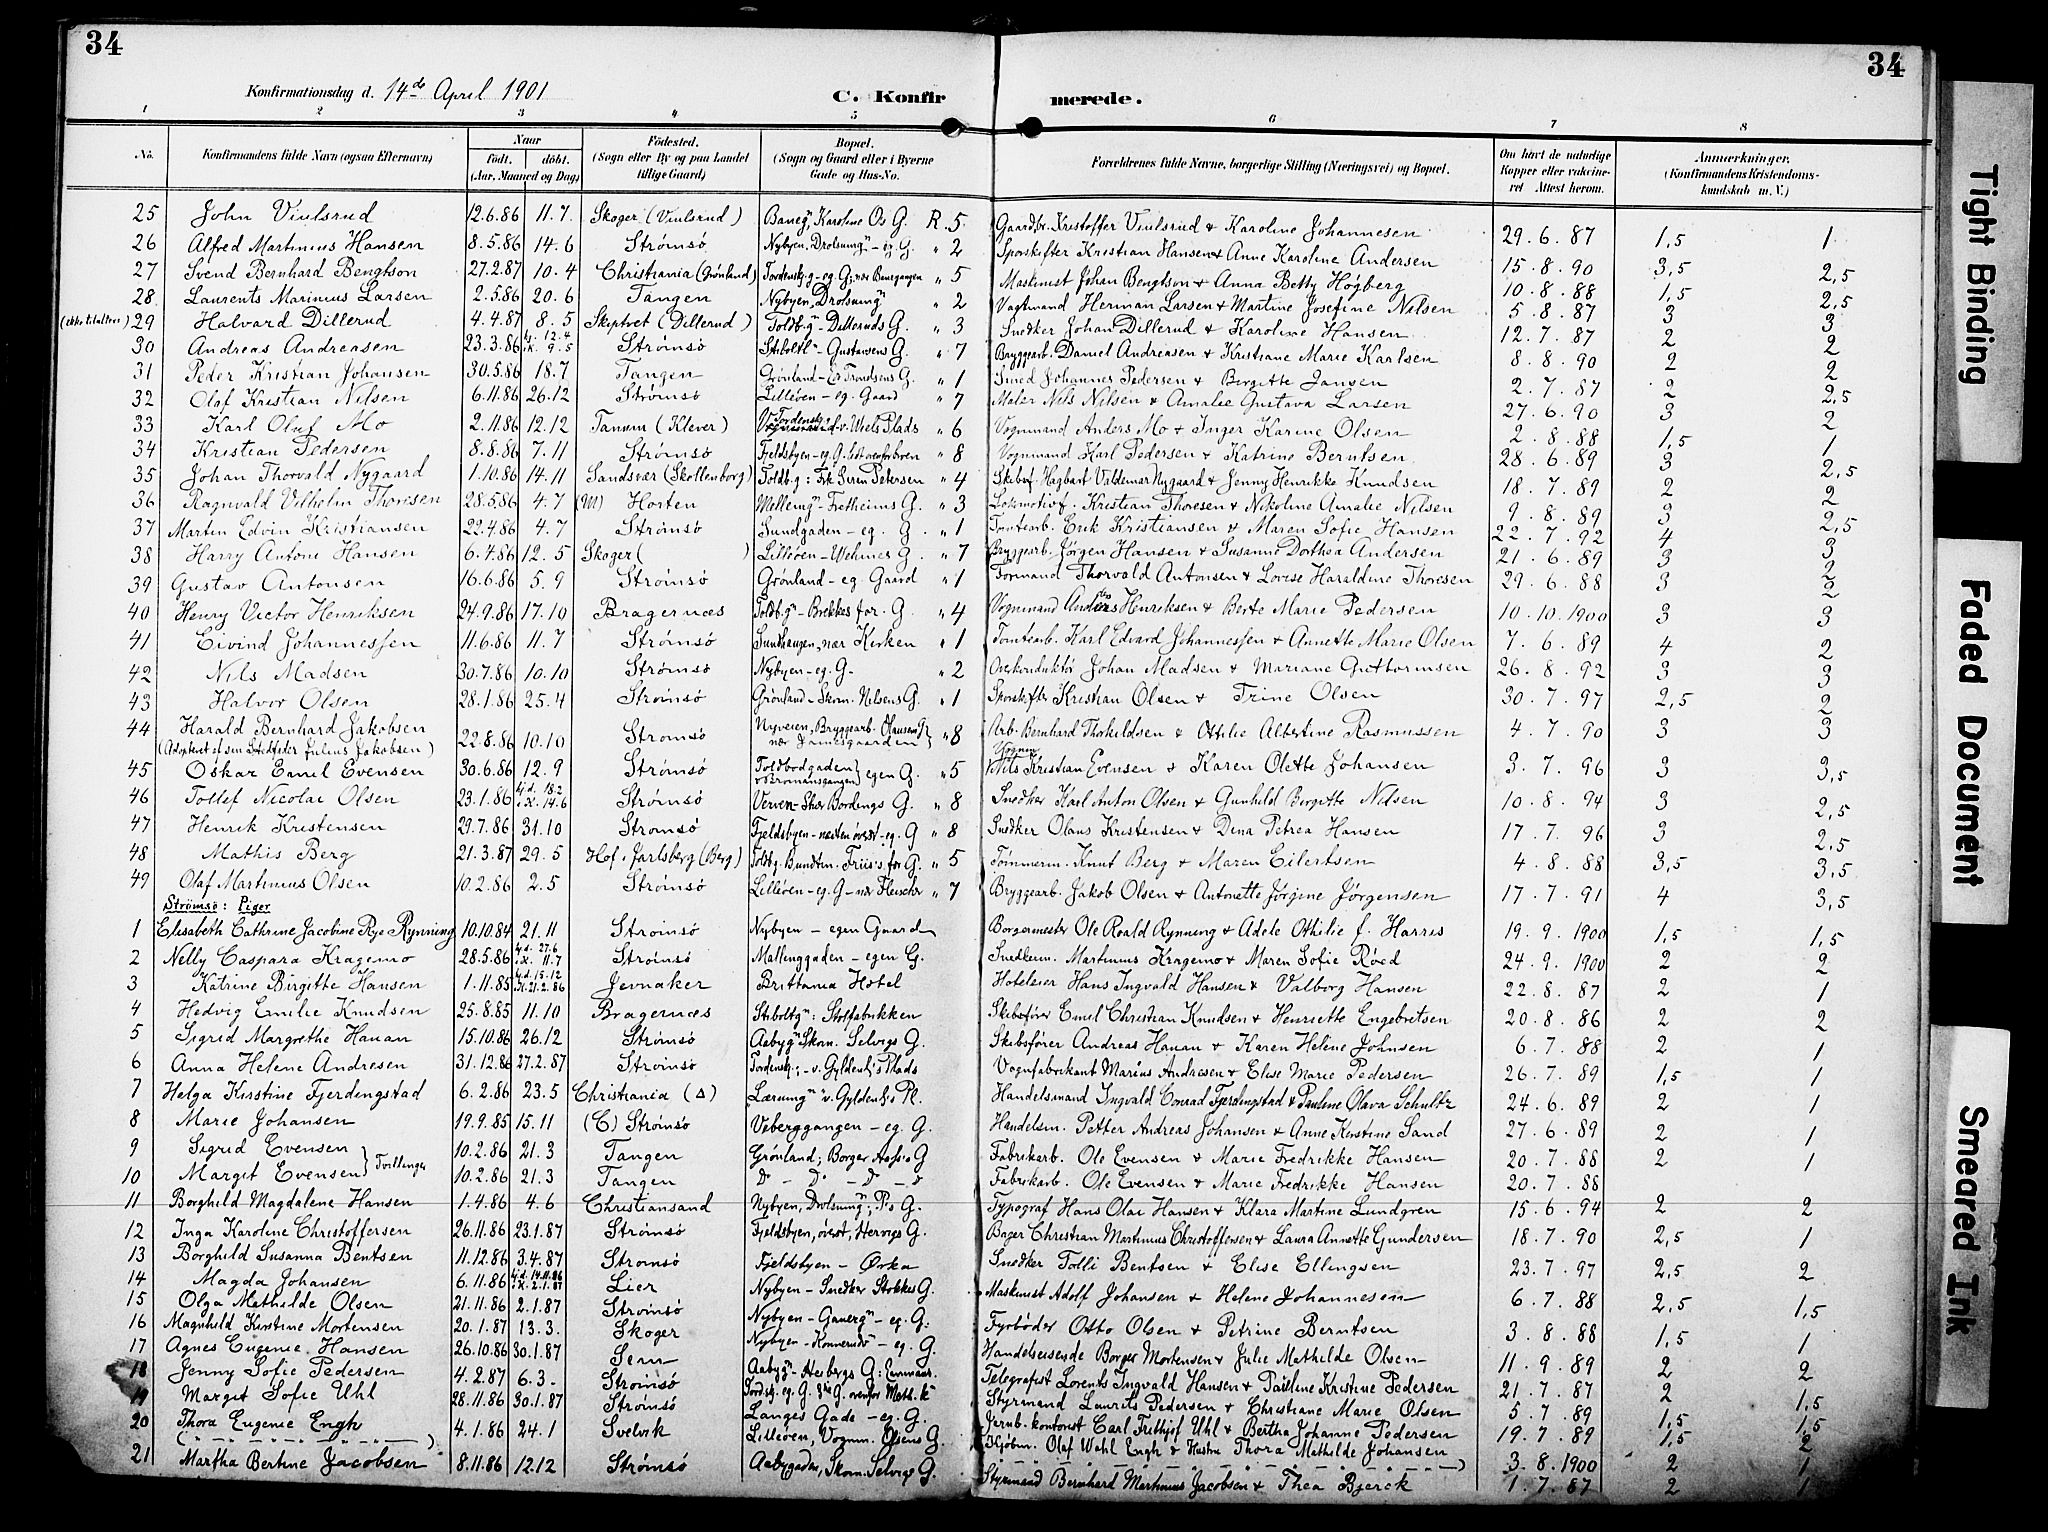 34
34
Konfirmationsdag d. 14de April 1901
C. Konfirmerede.
1 2 3 4 5 6 7 8
No. Konfirmandens fulde Navn (ogsaa Efternavn) Naar född. döbt. (Aar, Maaned og Dag) Födested. (Sogn eller By og paa Landet tillige Gaard) Bopæl. (Sogn og Gaard eller i Byerne Gade og Hus-No. Forældrenes fulde Navne, borgerlige Stilling (Næringsvei) og Bopæl. Om havt de naturlige Kopper eller vakcineret Attest herom. Anmærkninger. (Konfirmandens Kristendomskundskab m. V.)
25 John Viulsrud 12.6.86 11.7. Skoger (Viulsrud) Baneg., Karoline Os G. R.5 Gaardbr. Kristoffer Viulsrud & Karoline Johannesen 29.6.87 1,5 1
26 Alfred Martinius Hansen 8.5.86 14.6 Strømsø Nybyen, Drolsumg - eg. G. " 2 Sporskifter Kristian Hansen & Anne Karoline Andersen 15.8.90 3,5 2,5
27 Svend Bernhard Bengtson 27.2.87 10.4 Christiania (Grønland) Tordensk.g - eg. G; nær Banegangen " 5 Maskinist Johan Bengtson & Anna Betty Högberg 10.8.88 1,5 2,5
28 Laurents Marinius Larsen 2.5.86 20.6 Tangen Nybyen, Drolsumg " 2 Vagtmand Herman Larsen & Martine Josefine Nilsen 5.8.87 3 3
29 Halvard Dillerud 4.4.87 8.5 Skiptvet (Dillerud) Toldb.g - Dilleruds G. " 3 Snedker Johan Dillerud & Karoline Hansen 12.7.87 2 2
30 Andreas Andreasen 23.3.86 Hj. 12.4 i K. 9.5 Strømsø Stiboltg - Gustavsens G. " 7 Bryggearb. Daniel Andreasen & Kristiane Marie Karlsen 8.8.90 2 2
31 Peder Kristian Johansen 30.5.86 18.7 Tangen Grønland - Er. Trondsens G. " 1 Smed Johannes Pedersen & Bergitte Jansen 2.7.87 2 2,5
32 Olaf Kristian Nilsen 6.11.86 26.12 Strømsø Lilleøen - eg. Gaard " 7 Maler Nils Nilsen & Amalie Gustava Larsen 27.6.90 3 2
33 Karl Oluf Mo 2.11.86 12.12 Tanum (Klever) Tordensk. v. Uhels Plads " 6 Vognmand Anders Mo & Inger Karine Olsen 2.8.88 1,5 1
34 Kristian Pedersen 8.8.86 7.11 Strømsø Fjeldsbyen - eg. G. lidt ovenfor broen " 8 Vognmand Karl Pedersen & Katrine Berntsen 28.6.89 3 2,5
35 Johan Thorvald Nygaard 1.10.86 14.11 Sandsvær (Skollenborg) Toldb.g: Frk Seren Petersen " 4 Skibsf. Hagbart Valdemar Nygaard & Jenny Henrikke Knudsen 18.7.89 2 2
36 Ragnvald Vilhelm Thoresen 28.5.86 4.7 (M) Horten Melleng - Fretheims G. " 3 Lokomotivf. Kristian Thoresen & Nikoline Amalie Nilsen 9.8.89 3 2,5
37 Martin Edvin Kristiansen 22.4.86 4.7 Strømsø Sundgaden - eg. G. " 1 Tomtearb. Erik Kristiansen & Maren Sofie Hansen 22.7.92 4 3
38 Harry Antoni Hansen 6.4.86 12.5 Skoger ( ) Lilleøen - Wehmes G. " 7 Bryggearb. Jörgen Hansen & Susanne Dorthea Andersen 21.6.89 3 2
39 Gustav Antonsen 16.6.86 5.9 Strømsø Grønland - eg. Gaard " 1 Formand Thorvald Antonsen & Lovise Haraldine Thoresen 29.6.88 3 2
40 Henry Victor Henriksen 24.9.86 17.10 Bragernæs Toldb.g - Brekkes for. G. " 4 Vognmand Anders Henriksen & Berte Marie Pedersen 10.10.1900 3 3
41 Eivind Johannessen 11.6.86 11.7 Strømsø Sundhaugen, nær Kirken " 1 Tomtearb. Karl Edvard Johannessen & Annette Marie Olsen 7.6.89 4 2
42 Nils Madsen 30.7.86 10.10 Strømsø Nybyen - eg. G. " 2 Overkonduktör Johan Madsen & Mariane Guttormsen 26.8.92 3 3
43 Halvor Olsen 28.1.86 25.4 Strømsø Grønland - Skom. Nilsens G. " 1 Sporskifter Kristian Olsen & Trine Olsen 30.7.97 2,5 2
44 Harald Bernhard Jakobsen 22.8.86 10.10 Strømsø Nyveien, Bryggearb. Clausens G. " 8 Arb. Bernhard Thorkildsen & Ottilie Albertine Rasmussen 4.7.90 3 3
(Adopteret af sin Stedfader Julius Jakobsen)
45 Oskar Emil Evensen 30.6.86 12.9 Strømsø Toldbodgaden v. Bromansgangen egen G. " 5 Vognm. Nils Kristian Evensen & Karen Olette Johansen 3.7.96 3 3,5
46 Tollef Nicolai Olsen 23.1.86 Hj.d. 18.2 i K. 14.6 Strømsø Verven - Skos Bordings G. " 8 Snedker Karl Anton Olsen & Gunhild Birgitte Nilsen 10.8.94 3 2,5
47 Henrik Kristensen 29.7.86 31.10 Strømsø Fjeldsbyen - nesten øverst - eg. G " 8 Snedker Olaus Kristensen & Dina Petrea Hansen 17.7.96 3 2,5
48 Mathis Berg 21.3.87 29.5 Hof i Jarlsberg (Berg) Toldbg. Bundtm. Friis's for G. " 5 Tømmerm. Knut Berg & Maren Eilertsen 4.8.88 3,5 3,5
49 Olaf Martinius Olsen 10.2.86 2.5 Strømsø Lilleøen - eg. G - nær Fleischer " 7 Bryggearb. Jakob Olsen & Antonette Jörgine Jörgensen 17.7.91 4 3,5
Strømsø: Piger
1 Elisabeth Cathrine Jacobine Rye Rynning 10.10.84 21.11 Strømsø Nybyen - egen Gaard Borgermester Ole Roald Rynning & Adele Othilie f. Harris 19.9.1900 1,5 1,5
2 Nelly Caspara Kragemo 28.5.86 Hj.d. 27.6 i K. 11.7 Strømsø Mallinggaden - egen G. Snedkerm. Martinius Kragemo & Maren Sofie Röed 24.9.1900 2 2
3 Katrine Birgitte Hansen 1.11.85 Hj.d. 15.12 i K. 21.2.86 Jevnaker Brittania Hotel Hoteleier Hans Ingvald Hansen & Valborg Hansen 22.8.87 2 1
4 Hedvig Emilie Knudsen 25.8.85 11.10 Bragernæs Stiboltg: Stolfabrikken Skibsfører Emil Christian Knudsen & Henriette Engebretsen 20.8.86 2 2
5 Sigrid Margrethe Hanan 15.10.86 26.12 Strømsø Aabyg Skom. Selvigs G. Skibsfører Andreas Hanan & Karen Helene Johnsen 6.7.88 2 1
6 Anna Helene Andresen 31.12.86 27.2.87 Strømsø Tordensk.; - v. Gyldenl.s Plads Vognfabrikant Marius Andresen & Elise Marie Pedersen 26.7.89 1,5 1
7 Helga Kirstine Fjerdingstad 6.2.86 23.5 Christiania (Δ) Lærumg v. Gyldenl.s Pl. Handelsmand Ingvald Conrad Fjerdingstad & Pauline Olava Schultz 24.6.89 2 1
8 Marie Johansen 19.9.85 15.11 (C) Strømsø Veberggangen - eg. G. Handelsm. Petter Andreas Johansen & Anne Kirstine Sand 27.6.89 2 1
9 Sigrid Evensen } Tvillinger 10.2.86 21.3 Tangen Grønland; Borger Aas's G Fabrikarb. Ole Evensen & Marie Fredrikke Hansen 20.7.88 2 1
10 Margit Evensen 10.2.86 21.3 Tangen Do - Do - Do - Do Fabrikarb. Ole Evensen & Marie Fredrikke Hansen 20.7.88
11 Borghild Magdalene Hansen 1.4.86 4.6 Christiansand Nybyen, Drolsumg; P.s G. Typograf Hans Olai Hansen & Klara Martine Lundgren 15.6.94 2 2
12 Inga Karoline Christoffersen 26.11.86 23.1.87 Strømsø Fjeldsbyen, øverst, Hervigs G. Bager Christian Martinius Christoffersen & Laura Annette Gundersen 18.7.90 2,5 1
13 Borghild Susanna Bentsen 11.12.86 3.4.87 Strømsø Fjeldsbyen - Ovka Snedker Tolli Bentsen & Elise Ellingsen 23.7.97 2,5 2
14 Magda Johansen 6.11.86 Hj.d. 14.11.86 i K. 2.1.87 Lier Nybyen - Snedker Stokkes G. Maskinist Adolf Johansen & Helene Johannesen 6.7.88 2,5 1,5
15 Olga Mathilde Olsen 21.11.86 2.1.87 Strømsø Nybyen - Gauerg - eg. G: Fyrbøder Otto Olsen & Petrine Berntsen 3.8.88 1,5 1
16 Magnhild Kirstine Mortensen 20.1.87 13.3. Skoger Nybyen - Konnerudg - eg. G. Handelsreisende Borger Mortensen & Julie Mathilde Olsen 11.9.89 2 2
17 Agnes Eugenie Hansen 26.10.86 30.1.87 Sem Aabyg - Hesbergs G: Telegrafist Lorents Ingvald Hansen & Pauline Kristine Pedersen 21.7.87 2 1,5
18 Jenny Sofie Pedersen 4.2.87 6.3. Strømsø Tordsk. eg. G. ovenfor Meth. K. Styrmand Laurits Pedersen & Christiane Marie Olsen 5.7.89 1,5 1,5
19 Margit Sofie Uhl 28.11.86 30.1.87 Strømsø Langes Gade - eg. G. Jernb.kontorist Carl Frithjof Uhl & Bertha Johanne Pedersen 19.7.89 1,5 2
20 Thora Eugenie Engh 4.1.86 24.1 Svelvik Lilleøen, Vognm. Olsens G. Kjøbm. Olaf Wahl Engh & Hustru Thora Mathilde Johansen 3.8.1900 2 1
21 Martha Bertine Jacobsen 8.11.86 12.12 Strømsø Aabygaden, Skom. Selvigs G. Styrmand Bernhard Martinius Jacobsen & Thea Bjerck 1.7.87 2 1
Tight Binding
Faded Document
Smeared Ink